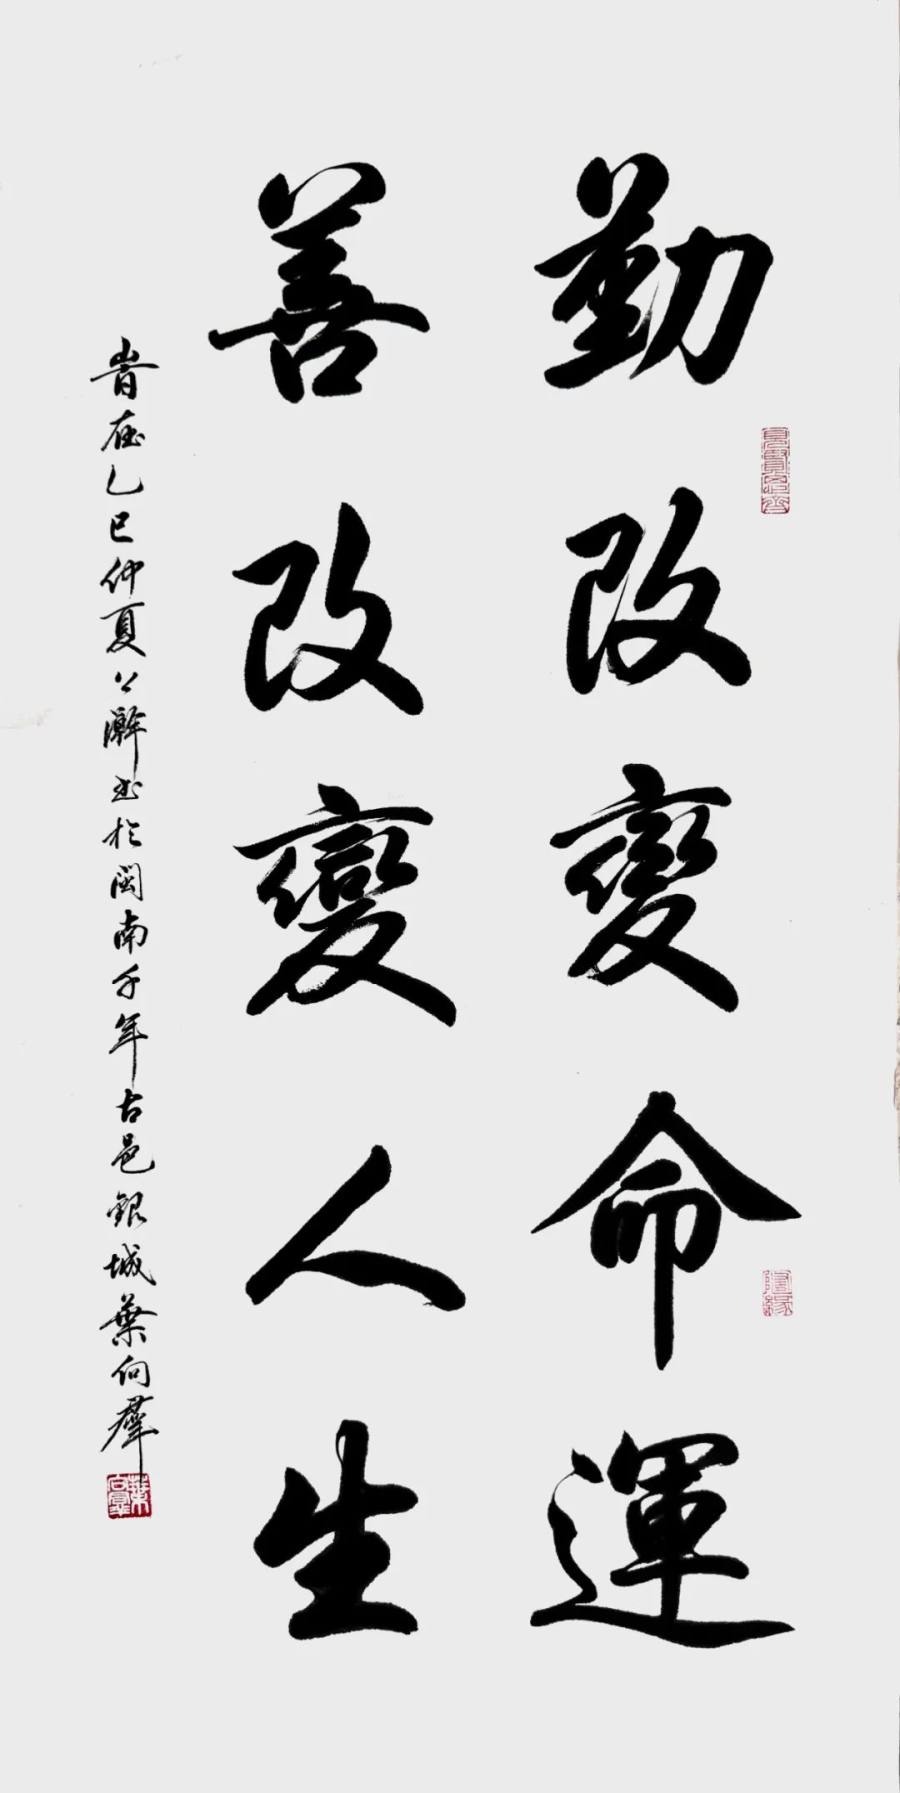 勤改變命運
善改變人生
旹在乙巳仲夏 書於閩南千年古邑銀城葉向群
葉向羣